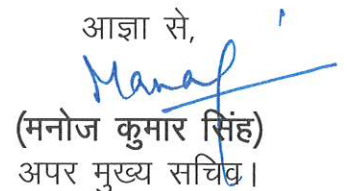 आज्ञा से,
Manoj
(मनोज कुमार सिंह)
अपर मुख्य सचिव।